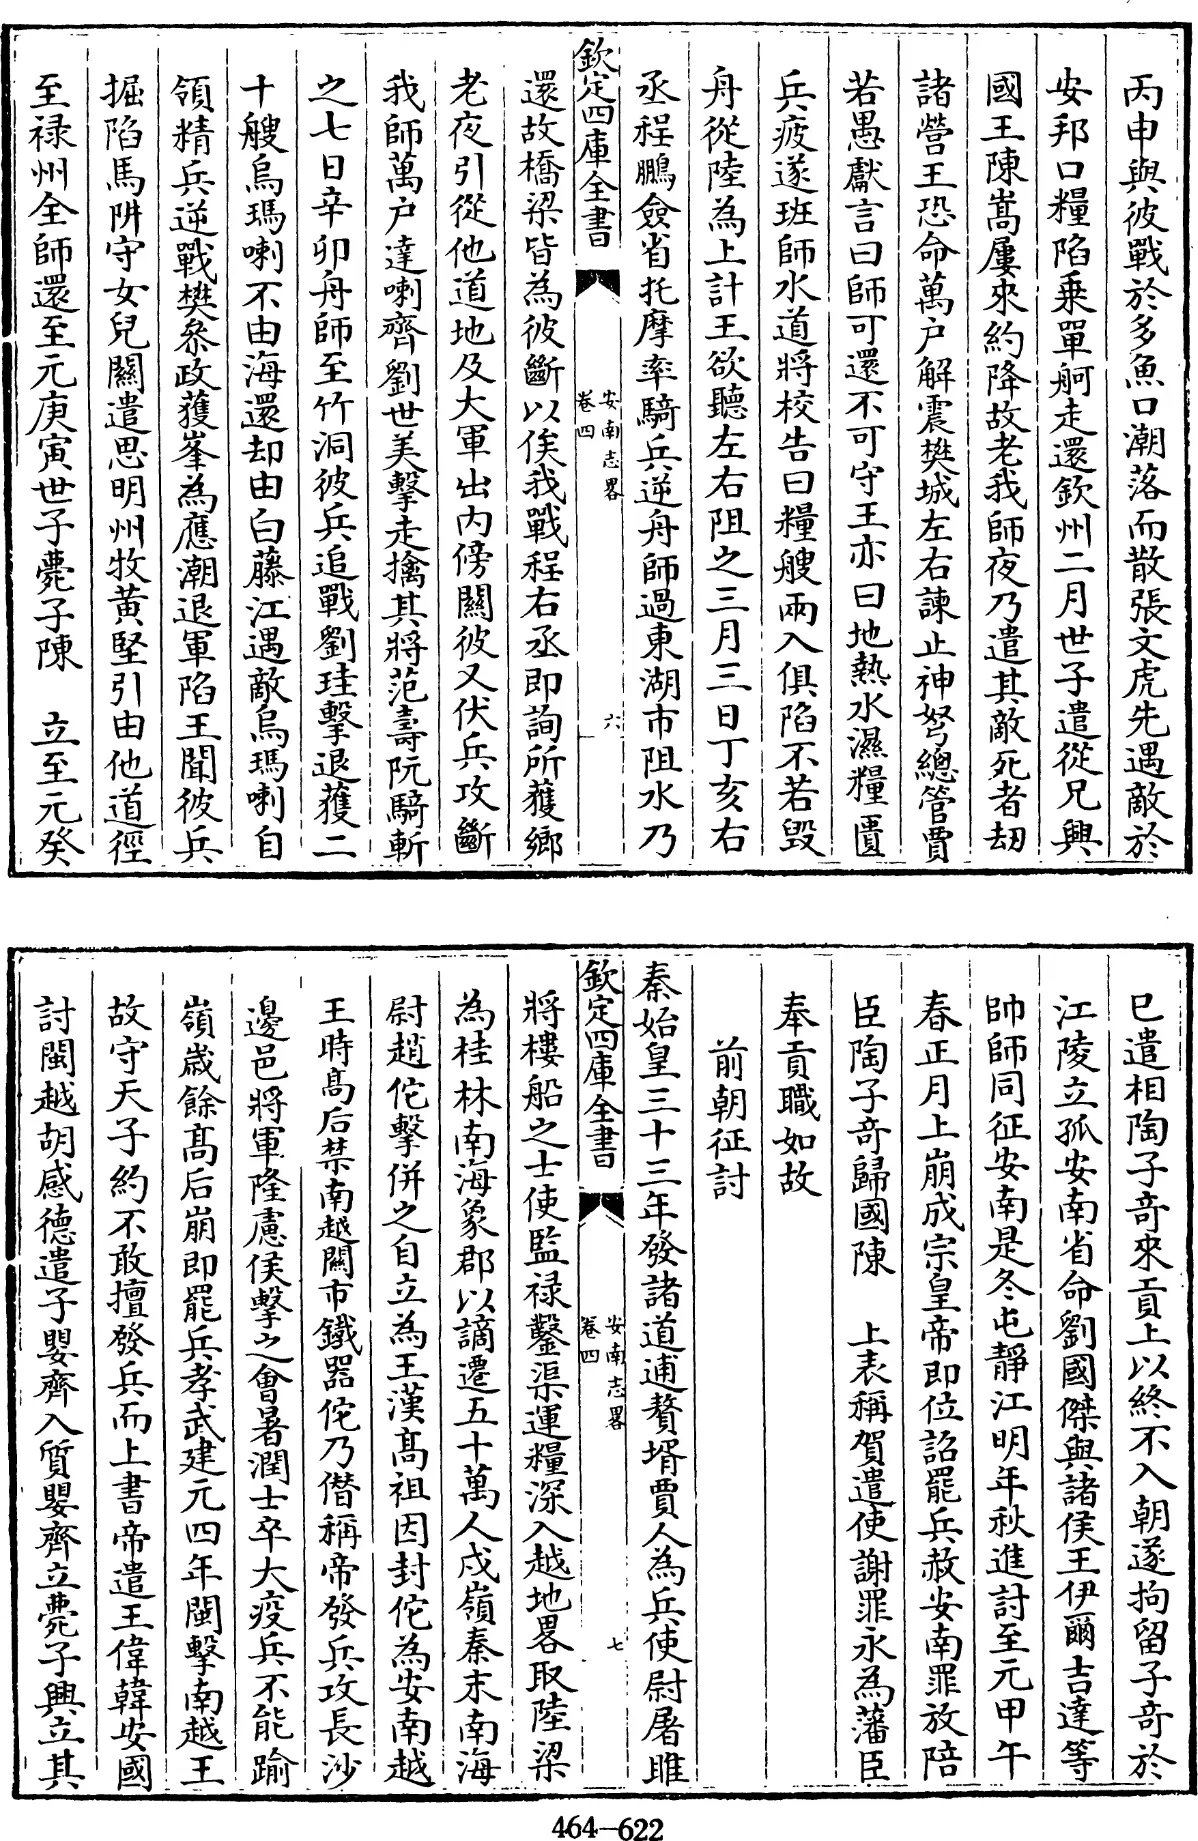 丙申與彼戰於多魚口潮落而散張文虎先遇敵於
安邦口糧陷乗單舸走還欽州二月世子遣從兄興
國王陳嵩屢來約降故老我師夜乃遣其敵死者刼
諸營王恐命萬户解震樊城左右諫止神弩總管賈
若愚獻言曰師可還不可守王亦曰地熱水濕糧匱
兵疲遂班師水道將校告曰糧艘兩入俱陷不若毁
舟從陸為上計王欲聽左右阻之三月三日丁亥右
丞程鵬僉省托摩率騎兵逆舟師過東湖市阻水乃
欽定四庫全書
安南志畧
卷四
六
還故橋梁皆為彼斷以俟我戰程右丞即詢所獲鄉
老夜引從他道地及大軍出内傍關彼又伏兵攻斷
我師萬户達喇齊劉世美擊走擒其將范壽阮騎斬
之七日辛卯舟師至竹洞彼兵追戰劉珪擊退獲二
十艘烏瑪喇不由海還却由白藤江遇敵烏瑪喇自
領精兵逆戰樊叅政獲峯為應潮退軍陷王聞彼兵
掘陷馬阱守女兒關遣思明州牧黄堅引由他道徑
至禄州全師還至元庚寅世子薨子陳 立至元癸
巳遣相陶子奇來貢上以終不入朝遂拘留子奇於
江陵立孤安南省命劉國傑與諸侯王伊爾吉達等
帥師同征安南是冬屯靜江明年秋進討至元甲午
春正月上崩成宗皇帝即位詔罷兵赦安南罪放陪
臣陶子奇歸國陳 上表稱賀遣使謝罪永為藩臣
奉貢職如故
前朝征討
秦始皇三十三年發諸道逋贅壻賈人為兵使尉屠睢
欽定四庫全書
安南志畧
卷四
七
將樓船之士使監禄鑿渠運糧深入越地畧取陸梁
為桂林南海象郡以謫遷五十萬人戍嶺秦末南海
尉趙佗擊併之自立為王漢髙祖因封佗為安南越
王時髙后禁南越關市鐵器佗乃僣稱帝發兵攻長沙
邊邑將軍隆慮侯擊之會暑潤士卒大疫兵不能踰
嶺嵗餘髙后崩即罷兵孝武建元四年閩擊南越王
故守天子約不敢擅發兵而上書帝遣王偉韓安國
討閩越胡感德遣子嬰齊入質嬰齊立薨子興立其
464—622